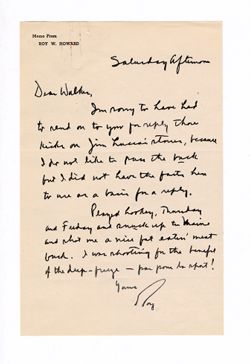 Memo From
ROY W. HOWARD
Saturday Afternoon
Dear Walker,
I'm sorry to have had
to send on to you for reply those
kicks on Jim Lucas's stories, because
I do not like to pass the buck
but I did not have the facts here
to use as a basis for a reply.
Thursday
and Friday and snuck up to Maine
and shot me a nice fat eatin' meat
buck. I was shooting for the benefit
of the deep-freeze — pas pour le sport!
Yours
Roy